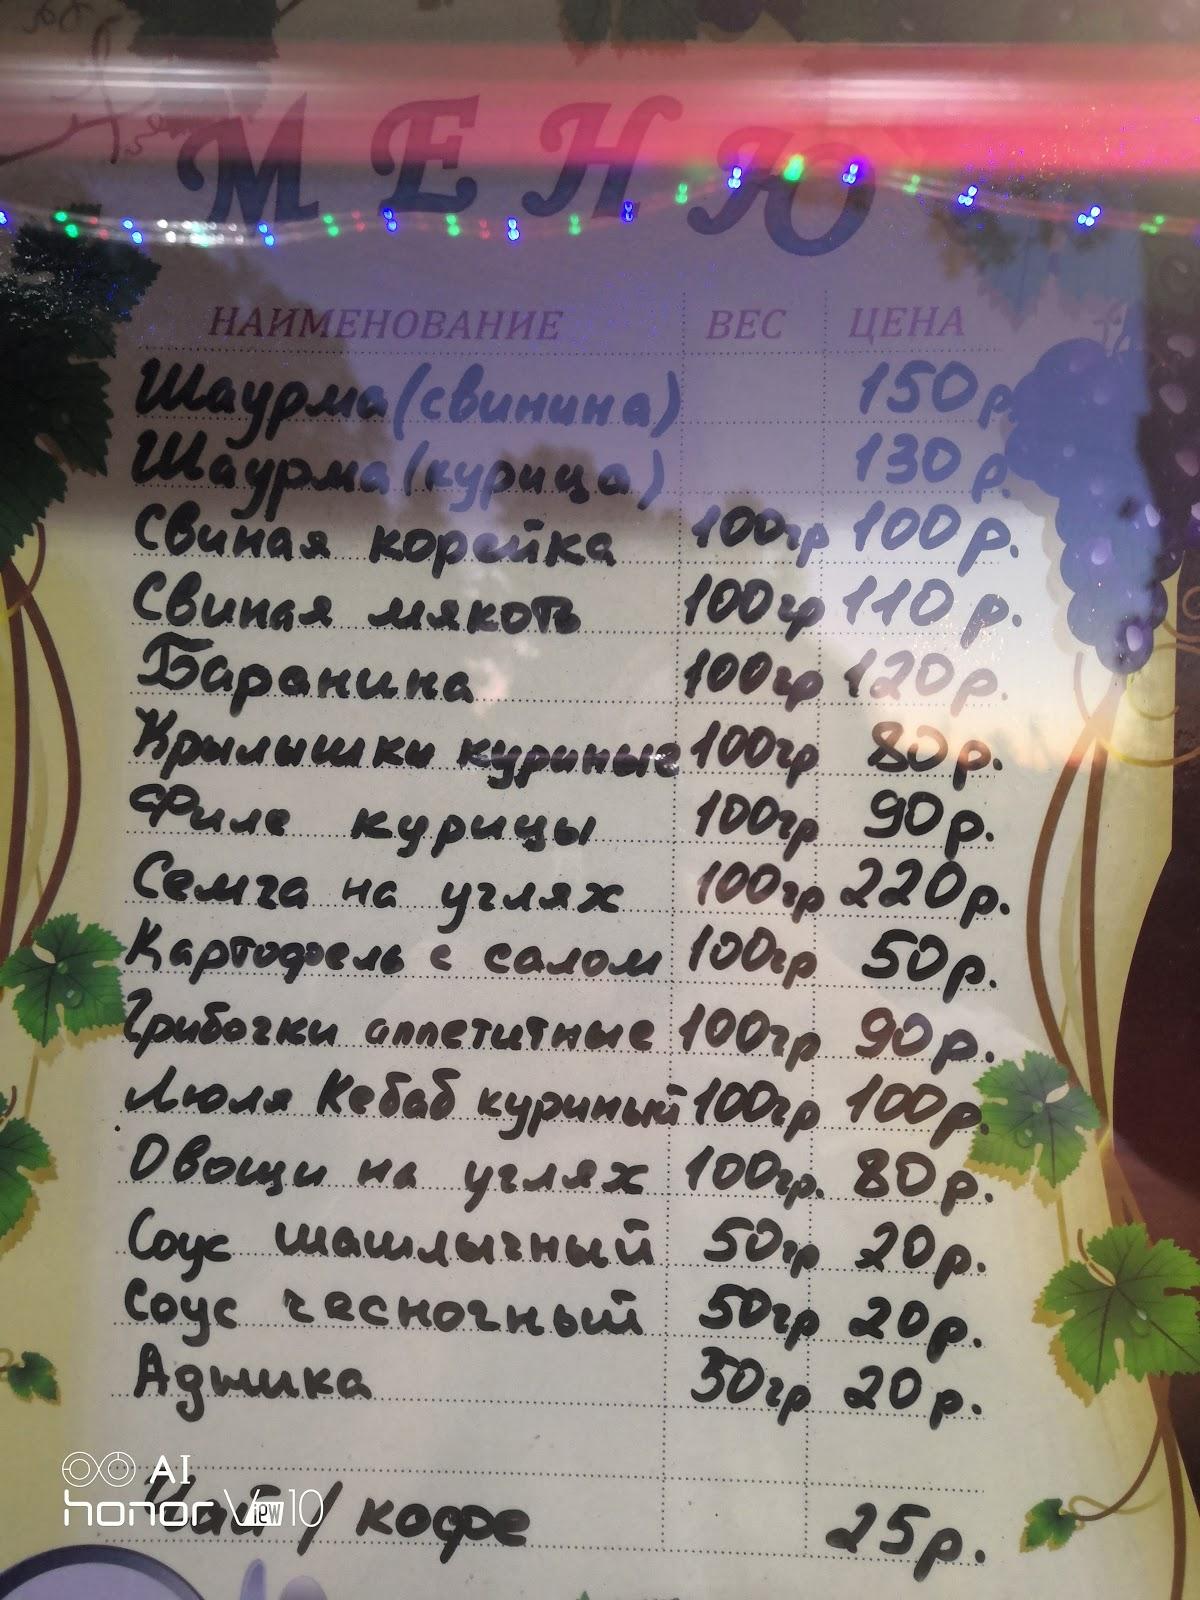 МЕНЮ
НАИМЕНОВАНИЕ ВЕС ЦЕНА
Шаурма (свинина) 150р
Шаурма (курица) 130р.
Свиная корейка 100гр 100р.
Свиная мякоть 100гр 110р.
Баранина 100гр 120р.
Крылышки куриные 100гр 80р.
Филе курицы 100гр 90р.
Семга на углях 100гр 220р.
Картофель с салом 100гр 50р.
Грибочки аппетитные 100гр 90р.
Люля Кебаб куриный 100гр 100р.
Овощи на углях 100гр. 80р.
Соус шашлычный 50гр 20р.
Соус чесночный 50гр 20р.
Аджика 50гр 20р.
Чай / кофе 25р.
AI
honor View10